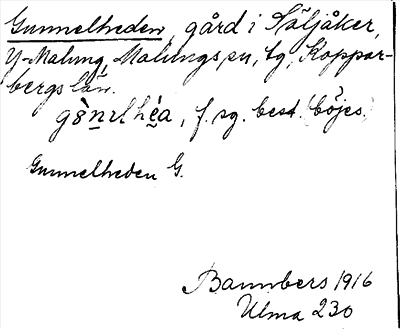 Gunnelheden, gård i Söljåker,
Y-Malung, Malungs sn, tg, Koppar-
bergs län.
f. sg. best. (böjes.)
Gunnelheden G.
Bannbers 1916
Ulma 230